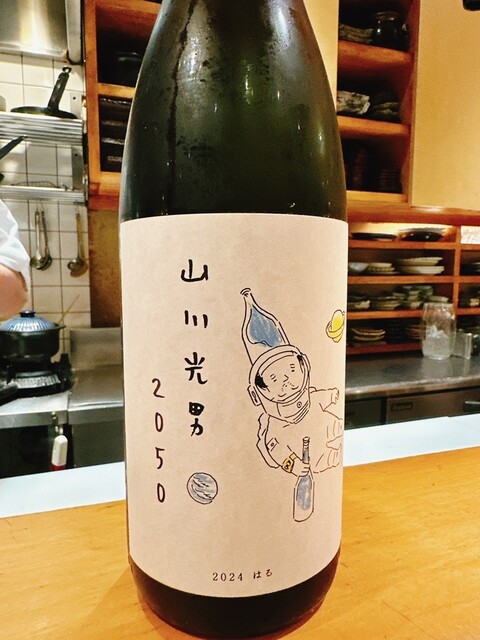 山川光男
2050
2024 はる